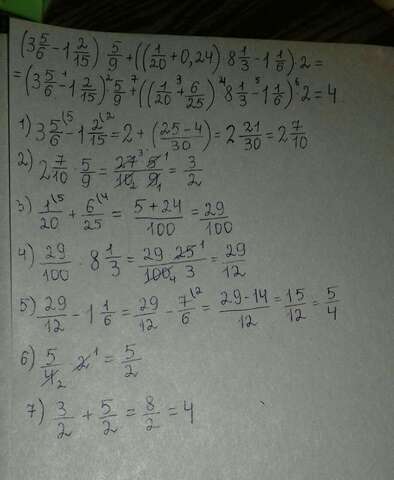 (3 5/6 - 1 2/15) · 5/9 + ((1/20 + 0,24) · 8 1/3 - 1 1/6) · 2 =
= (3 5/6 -¹ 1 2/15) ·² 5/9 +⁷ ((1/20 +³ 6/25) ·⁴ 8 1/3 -⁵ 1 1/6) ·⁶ 2 = 4
1) 3 5/6 (5 - 1 2/15 (2 = 2 + (25 - 4/30) = 2 21/30 = 2 7/10
2) 2 7/10 · 5/9 = 27³ 5¹/10₂ 9₁ = 3/2
3) 1/20 (5 + 6/25 (4 = 5 + 24/100 = 29/100
4) 29/100 · 8 1/3 = 29 25¹/100₄ 3 = 29/12
5) 29/12 - 1 1/6 = 29/12 - 7/6 (2 = 29 - 14/12 = 15/12 = 5/4
6) 5/4₂ · 2¹ = 5/2
7) 3/2 + 5/2 = 8/2 = 4